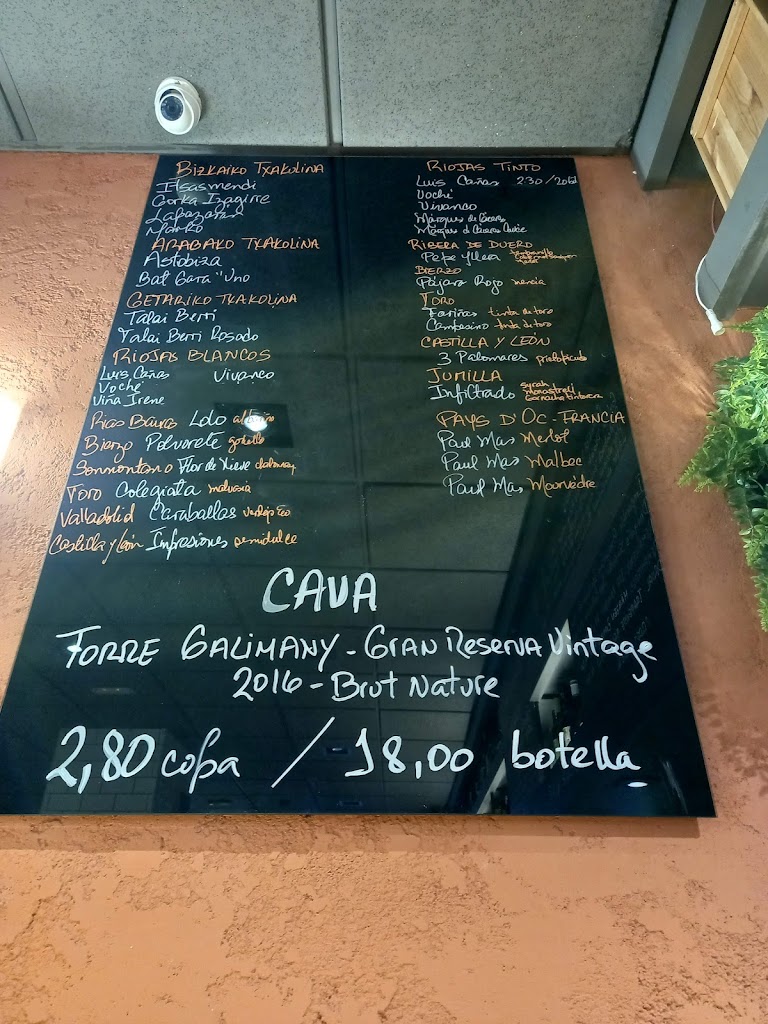 BIZKAIKO TXAKOLINA
Itsasmendi
Gorka Izagirre
Magalarte
ARABAKO TXAKOLINA
Astobiza
Bat Gara "Uno
GETARIKO TXAKOLINA
Talai Berri
Talai Berri Rosado
RIOJAS BLANCOS
Luis Cañas Vivanco
Voché
Viña Irene
Rias Baixas Lolo albariño
Bierzo Polvorete godello
Sonmontano Flor de Nieve
Toro Colegiata malvasia
Valladolid Caraballas verdejo
Castilla y León Infrasiones semidulce
RIOJAS TINTO
Luis Cañas 230/
Voché
Vivanco
Márques de Cáceres
Márques d Cáceres
RIBERA DE DUERO
Pepe Yllera tempranillo
BIERZO
Pájaro Rojo mencia
TORO
Fariñas tinta de toro
Campesino tinta de toro
CASTILLA Y LEÓN
3 Palomares
JUMILLA
Infiltrado syrah
monastrell
Garnacha tintorera
PAYS D'OC-FRANCIA
Paul Mas Merlot
Paul Mas Malbec
Paul Mas Moorvedre
CAVA
TORRE GALIMANY - GRAN RESERVA Vintage
2016 - BRUT NATURE
2,80 copa / 18,00 botella